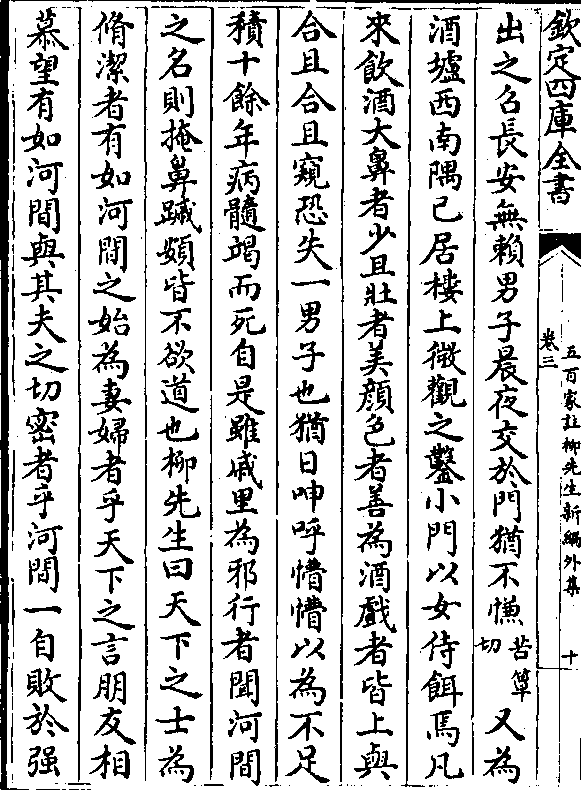 欽定四庫全書
五百家註柳先生新編外集
卷三
十
出之召長安無賴男子晨夜交於門猶不慊苦簟切又為
酒壚西南隅己居樓上微觀之鑿小門以女侍餌焉凡
來飲酒大鼻者少且壯者美顔色者善為酒戲者皆上與
合且合且窺恐失一男子也猶日呻呼懵懵以為不足
積十餘年病髓竭而死自是雖戚里為邪行者聞河間
之名則掩鼻蹙頞皆不欲道也柳先生曰天下之士為
脩潔者有如河間之始為妻婦者乎天下之言朋友相
慕望有如河間與其夫之切密者乎河間一自敗於强